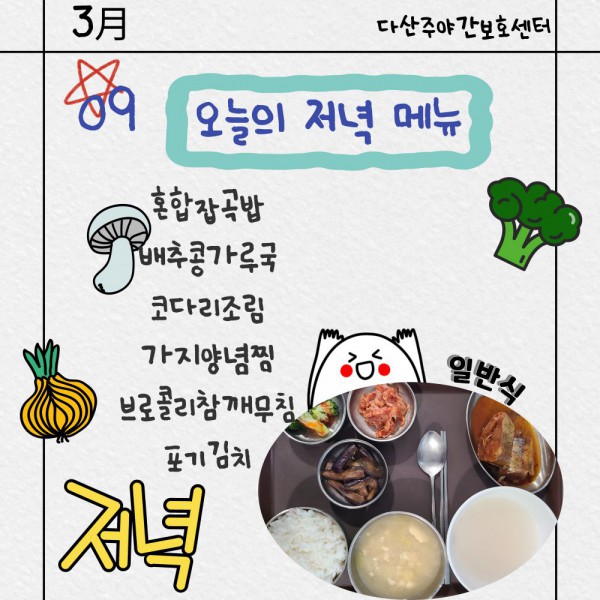 3月
다산주야간보호센터
09
오늘의 저녁 메뉴
혼합잡곡밥
배추콩가루국
코다리조림
가지양념찜
브로콜리참깨무침
포기김치
일반식
저녁